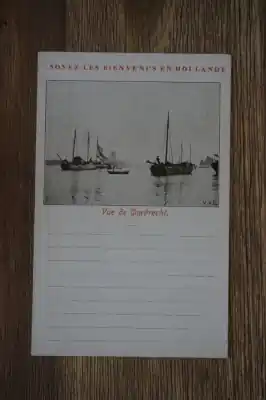 SOYEZ LES BIENVENUS EN HOLLANDE
Vue de Dordrecht.